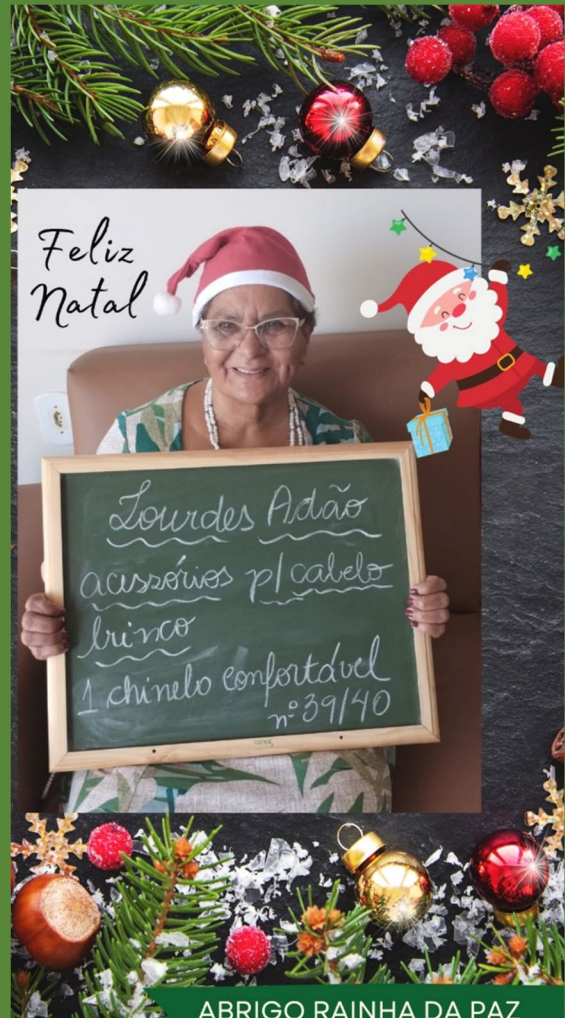 Feliz
Natal
Lourdes Adão
acessórios p/cabelo
brinco
1 chinelo confortável
nº 39/40
ABRIGO RAINHA DA PAZ